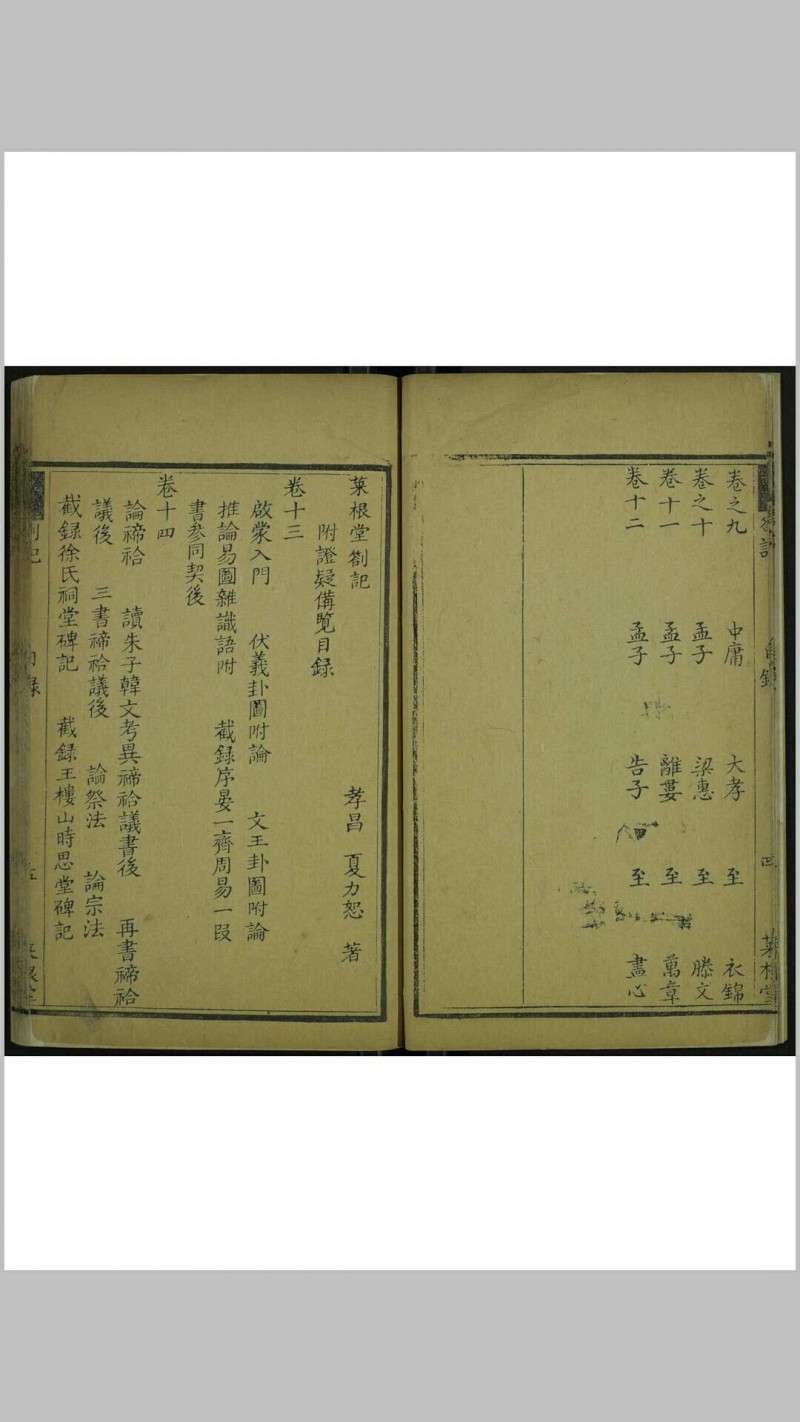 卷之九 中庸 大孝 至 衣錦
卷之十 孟子 梁惠 至 滕文
卷十一 孟子 離婁 至 萬章
卷十二 孟子 告子 至 盡心
菜根堂劄記 孝昌 夏力恕 著
附證疑備覽目録
卷十三
啟蒙入門 伏羲卦圖附論 文王卦圖附論
推論易圖雜識語附 截録序晏一齋周易一段
書参同契後
卷十四
論禘祫 讀朱子韓文考異禘祫議書後 再書禘祫
議後 三書禘祫議後 論祭法 論宗法
截録徐氏祠堂碑記 截録王樓山時思堂碑記